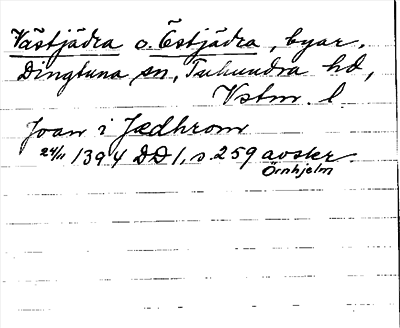 Västjädra o. Östjädra, byar,
Dingtuna sn, Tuhundra hd,
Vstm. l.
Joan i Jædhrom
24/11 1394 DD 1, s. 259 avskr.
Örnhjelm